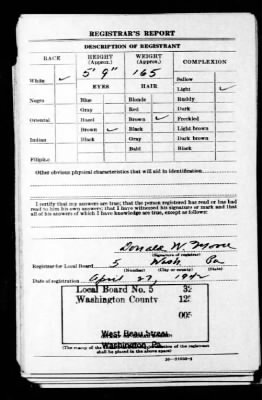 REGISTRAR'S REPORT
DESCRIPTION OF REGISTRANT
RACE HEIGHT (Approx.) WEIGHT (Approx.) COMPLEXION
5' 9" 165 Sallow
White ✓ Light ✓
EYES HAIR
Negro Blue Blonde Ruddy
Gray Red Dark
Oriental Hazel Brown ✓ Freckled
Brown ✓ Black Light brown
Indian Black Gray Dark brown
Bald Black
Filipino
Other obvious physical characteristics that will aid in identification
I certify that my answers are true; that the person registered has read or has had
read to him his own answers; that I have witnessed his signature or mark and that
all of his answers of which I have knowledge are true, except as follows:
Donald W. Moore
(Signature of registrar)
Registrar for Local Board 5 Wash Pa
(Number) (City or county) (State)
Date of registration April 27, 1942
Local Board No. 5 32
Washington County 125
005
West Beau Street
Washington, Pa.